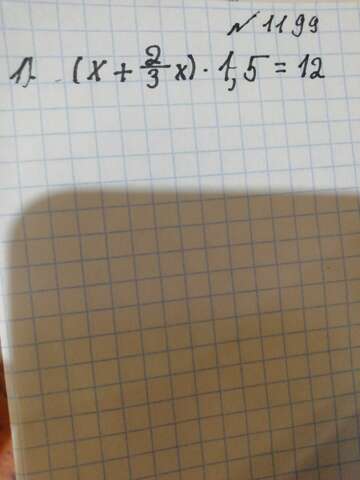 № 1199
1). (x + 2/3 x) · 1,5 = 12